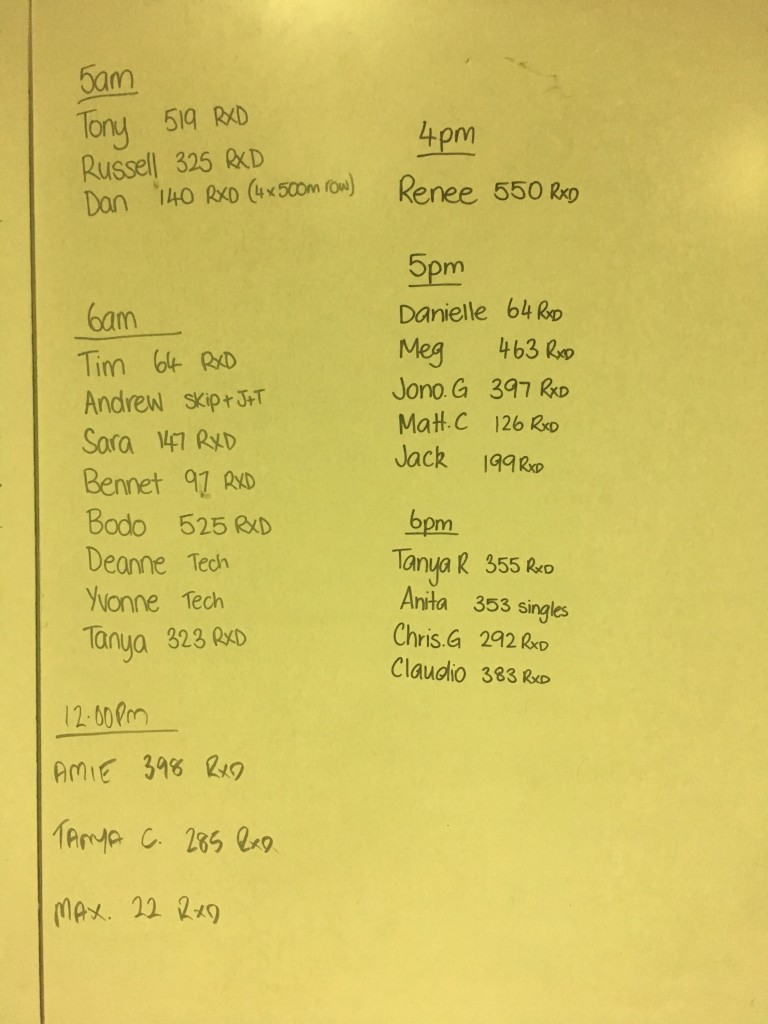 5am
Tony 519 RXD
Russell 325 RXD
Dan 140 RXD (4x500m row)
6am
Tim 64 RXD
Andrew skip+J+T
Sara 147 RXD
Bennet 97 RXD
Bodo 525 RXD
Deanne Tech
Yvonne Tech
Tanya 323 RXD
12.00Pm
AMIE 398 RXD
TANYA C. 285 RXD
MAX. 22 RXD
4pm
Renee 550 RXD
5pm
Danielle 64 RXD
Meg 463 RXD
Jono.G 397 RXD
Matt.C 126 RXD
Jack 199 RXD
6pm
Tanya R 355 RXD
Anita 353 singles
Chris.G 292 RXD
Claudio 383 RXD